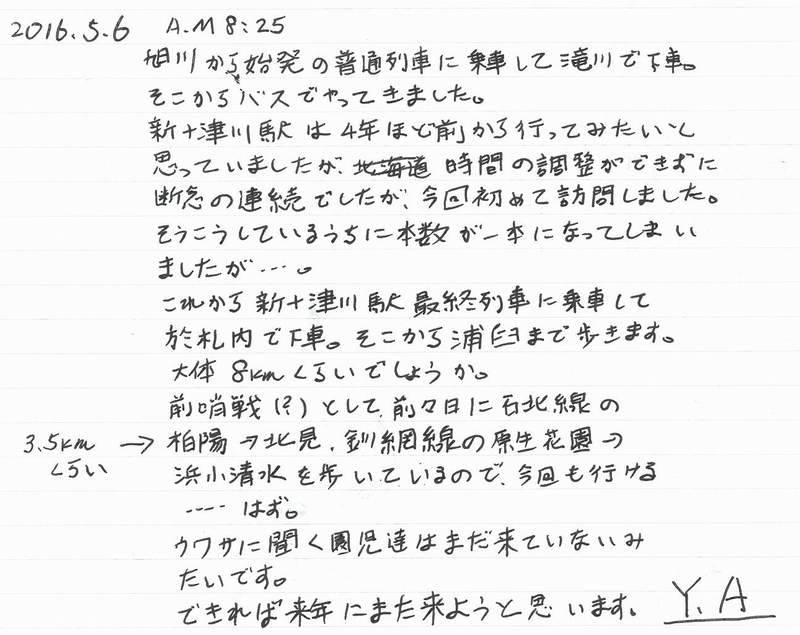 2016.5.6 A.M 8:25
旭川から始発の普通列車に乗車して滝川で下車。
そこからバスでやってきました。
新十津川駅は4年ほど前から行ってみたいと
思っていましたが、北海道 時間の調整ができずに
断念の連続でしたが、今回初めて訪問しました。
そうこうしているうちに本数が一本になってしまい
ましたが…。
これから新十津川駅最終列車に乗車して
於札内で下車。そこから浦臼まで歩きます。
大体 8kmくらいでしょうか。
前哨戦(?)として、前々日に石北線の
3.5km → 柏陽→北見、釧網線の原生花園→
くらい 浜小清水を歩いているので、今回も行ける
…… はず。
ウワサに聞く園児達はまだ来ていないみ
たいです。
できれば来年にまた来ようと思います。 Y.A